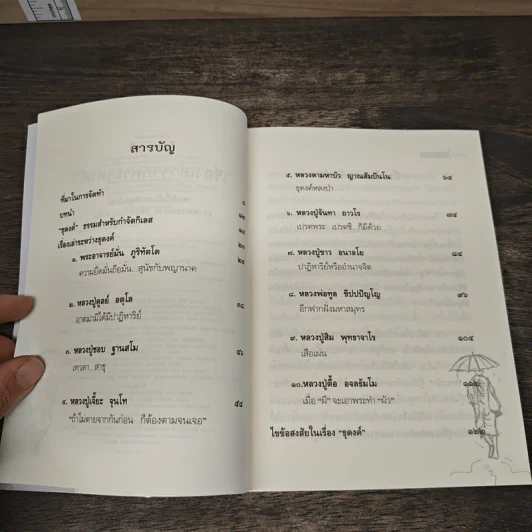 สารบัญ
ที่มาในการจัดทำ ๘
บทนำ
"ธุดงค์" ธรรมสำหรับกำจัดกิเลส
เรื่องเล่าระหว่างธุดงค์
๑. พระอาจารย์มั่น ภูริทัตโต
ความยึดมั่นถือมั่น...สุนัขกับพญานาค
๒. หลวงปู่ดุลย์ อตุโล ๓๘
อาตมามิได้มีปาฏิหาริย์
๓. หลวงปู่ชอบ ฐานสโม ๔๖
เทวดา...สาธุ
๔. หลวงปู่เจี๊ยะ จุนโท ๕๔
"ถ้าไม่ตายจากกันก่อน ก็ต้องตามจนเจอ"
๕. หลวงตามหาบัว ญาณสัมปันโน ๖๕
ธุดงค์หลงป่า
๖. หลวงปู่จันทา ถาวโร ๗๕
เปรตพระ เปรตชี...ก็มีด้วย
๗. หลวงปู่ขาว อนาลโย ๘๕
ปาฏิหาริย์หรืออำนาจจิต
๘. หลวงพ่อทูล ขิปปปัญโญ ๙๖
อีกฟากฝั่งมหาสมุทร
๙. หลวงปู่สิม พุทธาจาโร ๑๐๔
เสือเผ่น
๑๐.หลวงปู่ตื้อ อจลธัมโม ๑๑๒
เมื่อ "ผี" จะเอาพระทำ "ผัว"
ไขข้อสงสัยในเรื่อง "ธุดงค์" ๑๒๒